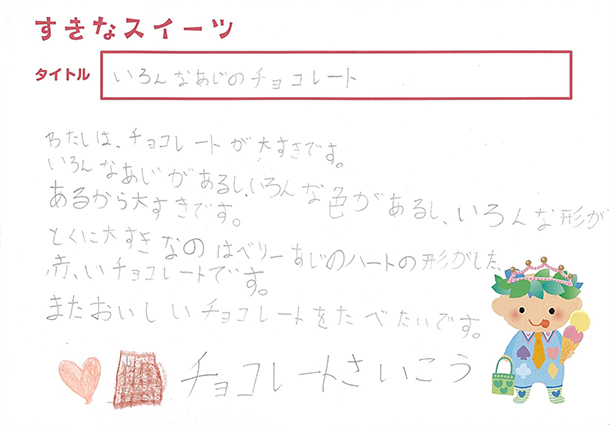 すきなスイーツ
タイトル
いろんなあじのチョコレート
わたしは、チョコレートが大すきです。
いろんなあじがあるし、いろんな色があるし、いろんな形が
あるから大すきです。
とくに大すきなのはベリーあじのハートの形がした、
赤いチョコレートです。
またおいしいチョコレートをたべたいです。
チョコレートさいこう